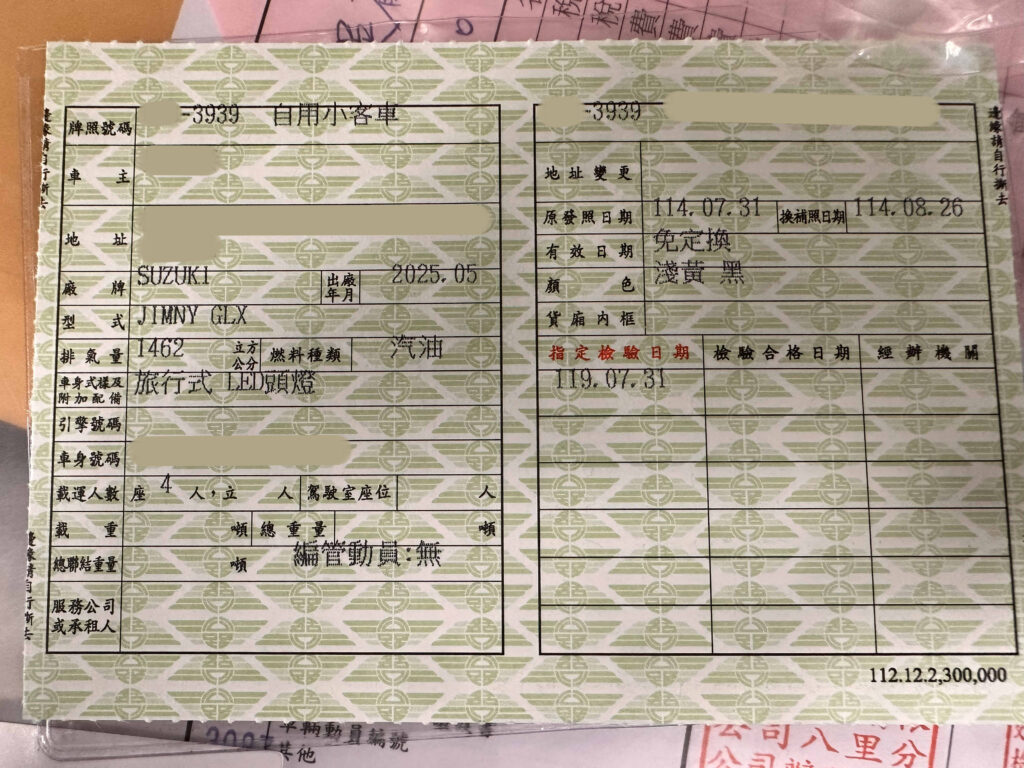 稅
稅
費
費
單
邊緣請自行撕去
邊緣請自行撕去
牌照號碼 -3939 自用小客車
車主
地址
廠牌 SUZUKI 出廠年月 2025.05
型式 JIMNY GLX
排氣量 1462 立方公分 燃料種類 汽油
車身式樣及附加配備 旅行式 LED頭燈
引擎號碼
車身號碼
載運人數 座 4 人,立 人 駕駛室座位 人
載重 噸 總重量 噸
總聯結重量 噸 編管動員:無
服務公司或承租人
邊緣請自行撕去
-3939
地址變更
原發照日期 114.07.31 換補照日期 114.08.26
有效日期 免定換
顏色 淺黃 黑
貨廂內框
指定檢驗日期 檢驗合格日期 經辦機關
119.07.31
112.12.2,300,000
車輛動員編號
其他
公司八里分
公司